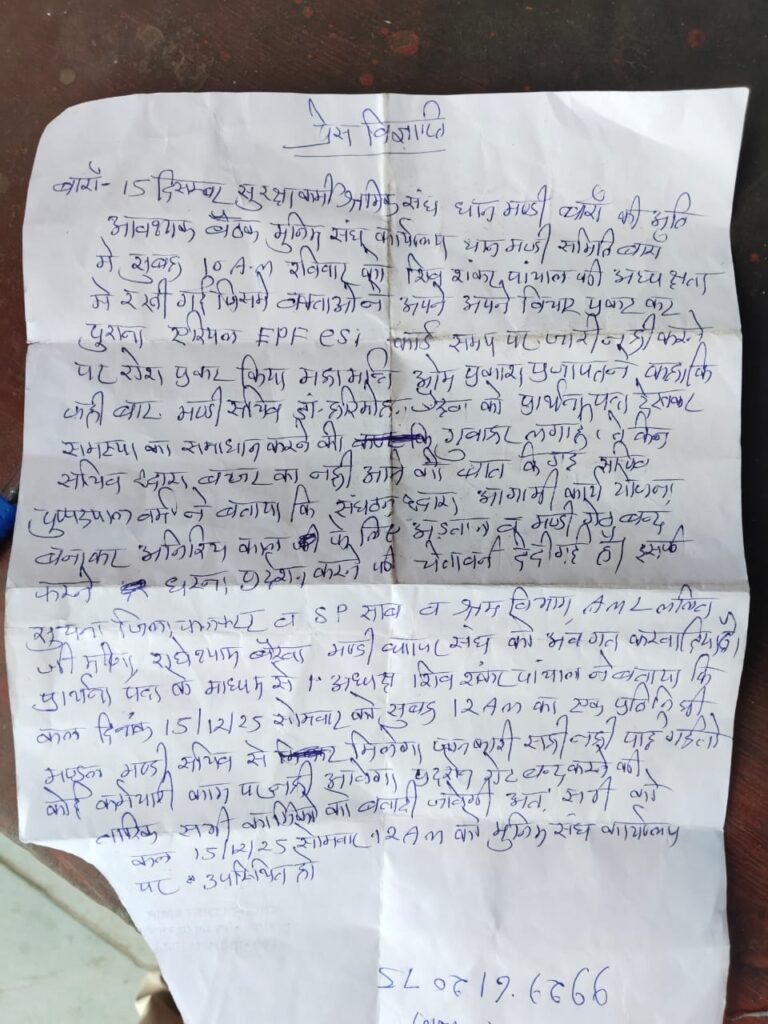 प्रेस विज्ञप्ति
बाराँ- 15 दिसम्बर सुरक्षाकर्मी श्रमिक संघ धान मण्डी बाराँ की अति
आवश्यक बैठक मुनिम संघ कार्यालय धान मण्डी समिति बाराँ
मे सुबह 10 A.m रविवार को शिव शंकर पांचाल की अध्यक्षता
मे रखी गई जिसमे वक्ताओ ने अपने अपने विचार प्रकट कर
पुराना एरियल EPF esi कार्ड समय पर जारी नही करने
पर रोश प्रकट किया महामन्त्रि ओम प्रकाश प्रजापत ने कहा कि
कही बार मण्डी सचिव डॉ. हरिमोहन को प्रार्थना पत्र देकर
समस्या का समाधान करने की गुवाहर लगाई लेकिन
सचिव द्वारा बजट का नही आने की बात कि गई सचिव
पुष्पदयाल वर्मा ने बताया कि संघठन द्वारा आगामी कार्य योजना
बनाकर अनिश्चित काल के लिए हडताल व मण्डी गेट बन्द
करने धरना प्रदेशन करने की चेतावनी देदी गई है। इसकी
सूचना जिला कलक्टर व SP साब व श्रम विभाग, ललित
जी मीणा, राधेश्याम बैरवा मण्डी व्यापार संघ को अवगत करवा दिया है।
प्रार्थना पत्र के माध्यम से। अध्यक्ष शिव शंकर पांचाल ने बताया कि
कल दिनांक 15/12/25 सोमवार को सुबह 12 Am का एक प्रतिनिधी
मण्डल मण्डी सचिव से मिलेगा सही नही पाई गई तो
कोई कर्मचारी काम पर नही आयेगा प्रदर्शन गेट बन्द करने की
तारिक सभी कार्मिको को बतादी जावेगी अतः सभी को
कल 15/12/25 सोमवार 12 Am को मुनिम संघ कार्यालय
पर उपस्थित हो
9929 61 20 75